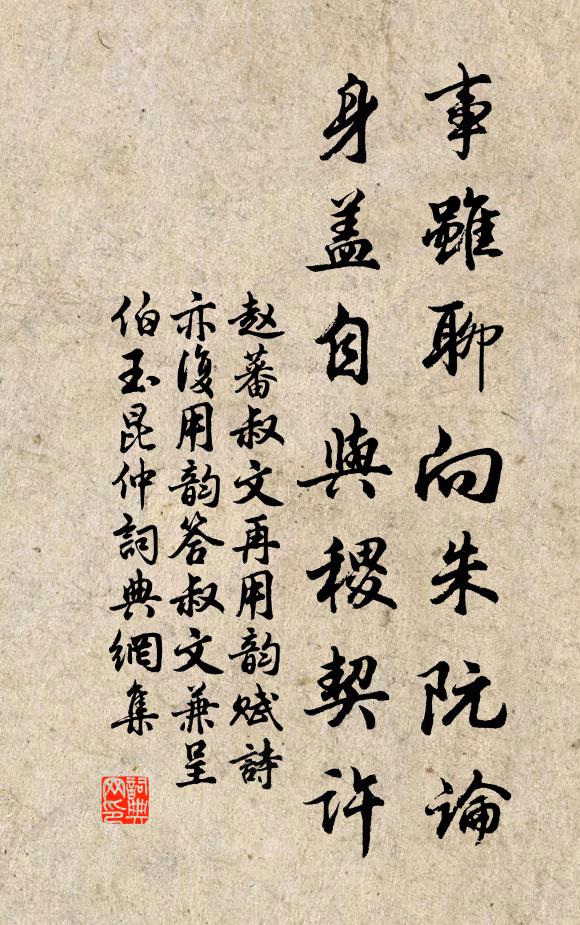 事雖聊向朱阮論
身盖自與稷契許
赵蕃叔文再用韵赋詩
亦復用韵答叔文兼呈
伯玉昆仲詞典網集
詞典
网印